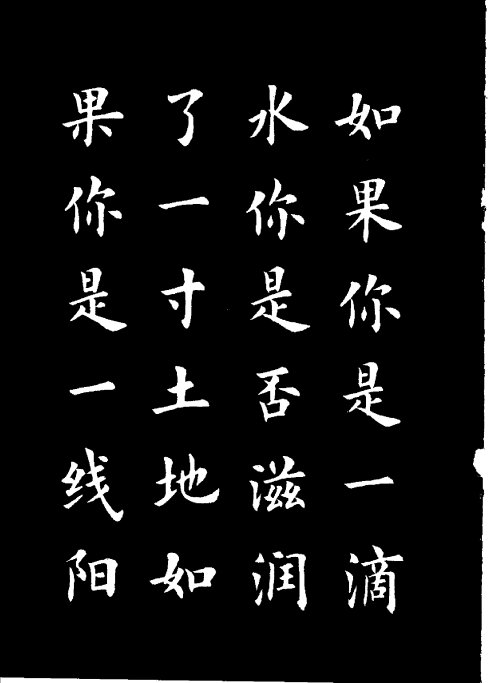 如果你是一滴
水你是否滋润
了一寸土地如
果你是一线阳